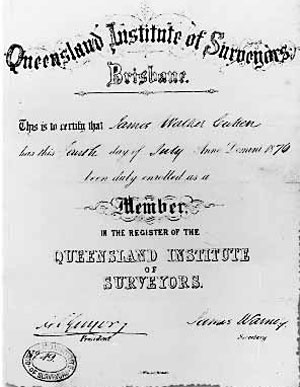 Queensland Institute of Surveyors,
Brisbane.
This is to certify that James Walker
has this day of July Anno Domini 1876
been duly enrolled as a
Member,
IN THE REGISTER OF THE
QUEENSLAND INSTITUTE
OF
SURVEYORS.
James Warner
President Secretary